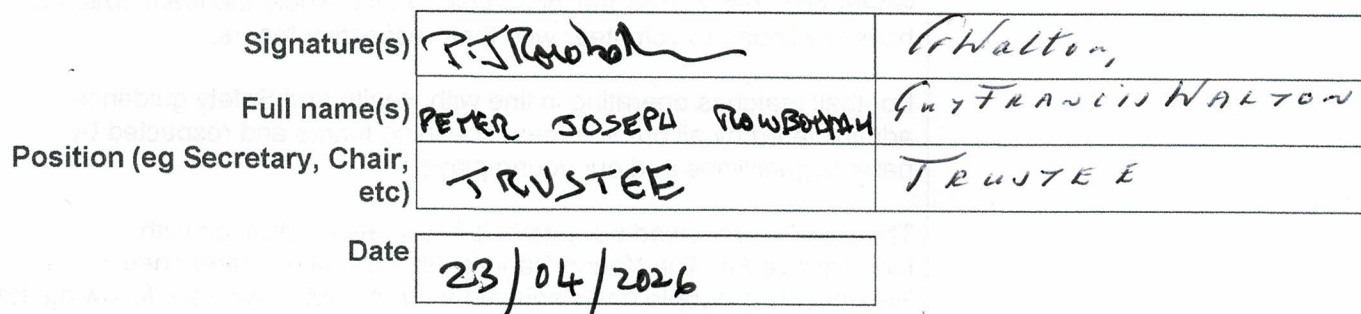 Signature(s) P.J Rowbotham GFWalton,
Full name(s) PETER JOSEPH ROWBOTHAM GUY FRANCIS WALTON
Position (eg Secretary, Chair, etc) TRUSTEE TRUSTEE
Date 23/04/2026